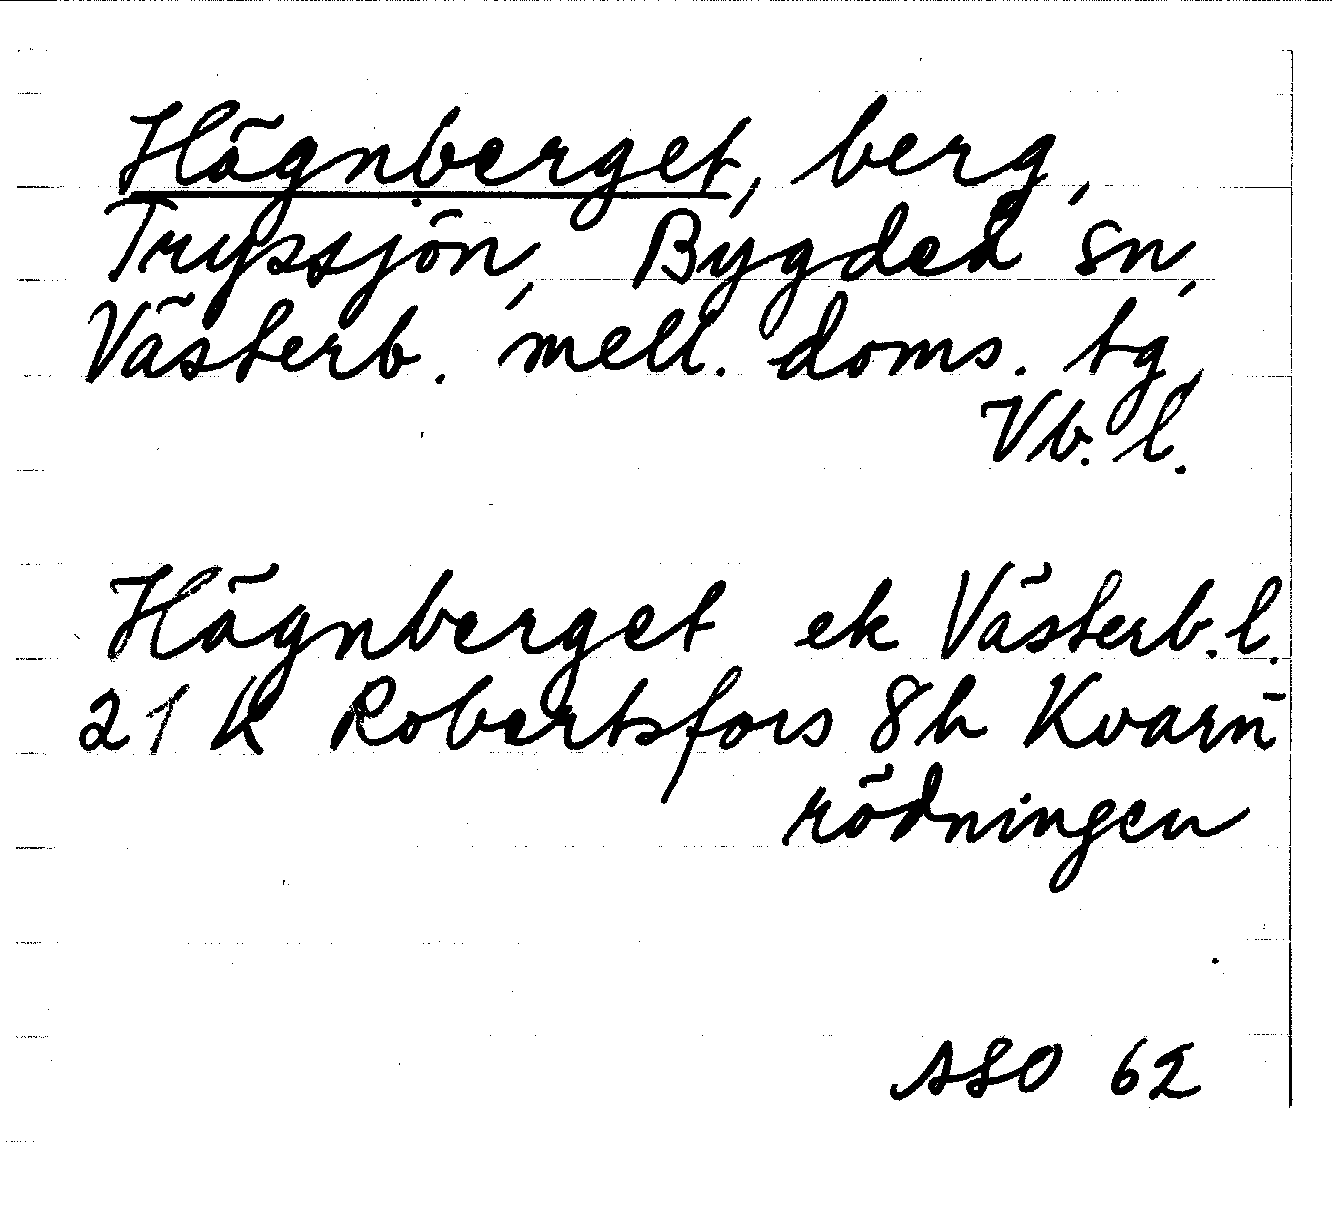 Högnberget, berg,
Tryssjön, Bygdeå sn,
Västerb. mell. doms. tg,
Vb. l.
Högnberget ek Västerb. l.
21 K Robertsfors 8h Kvarn-
rödningen
ASO 62